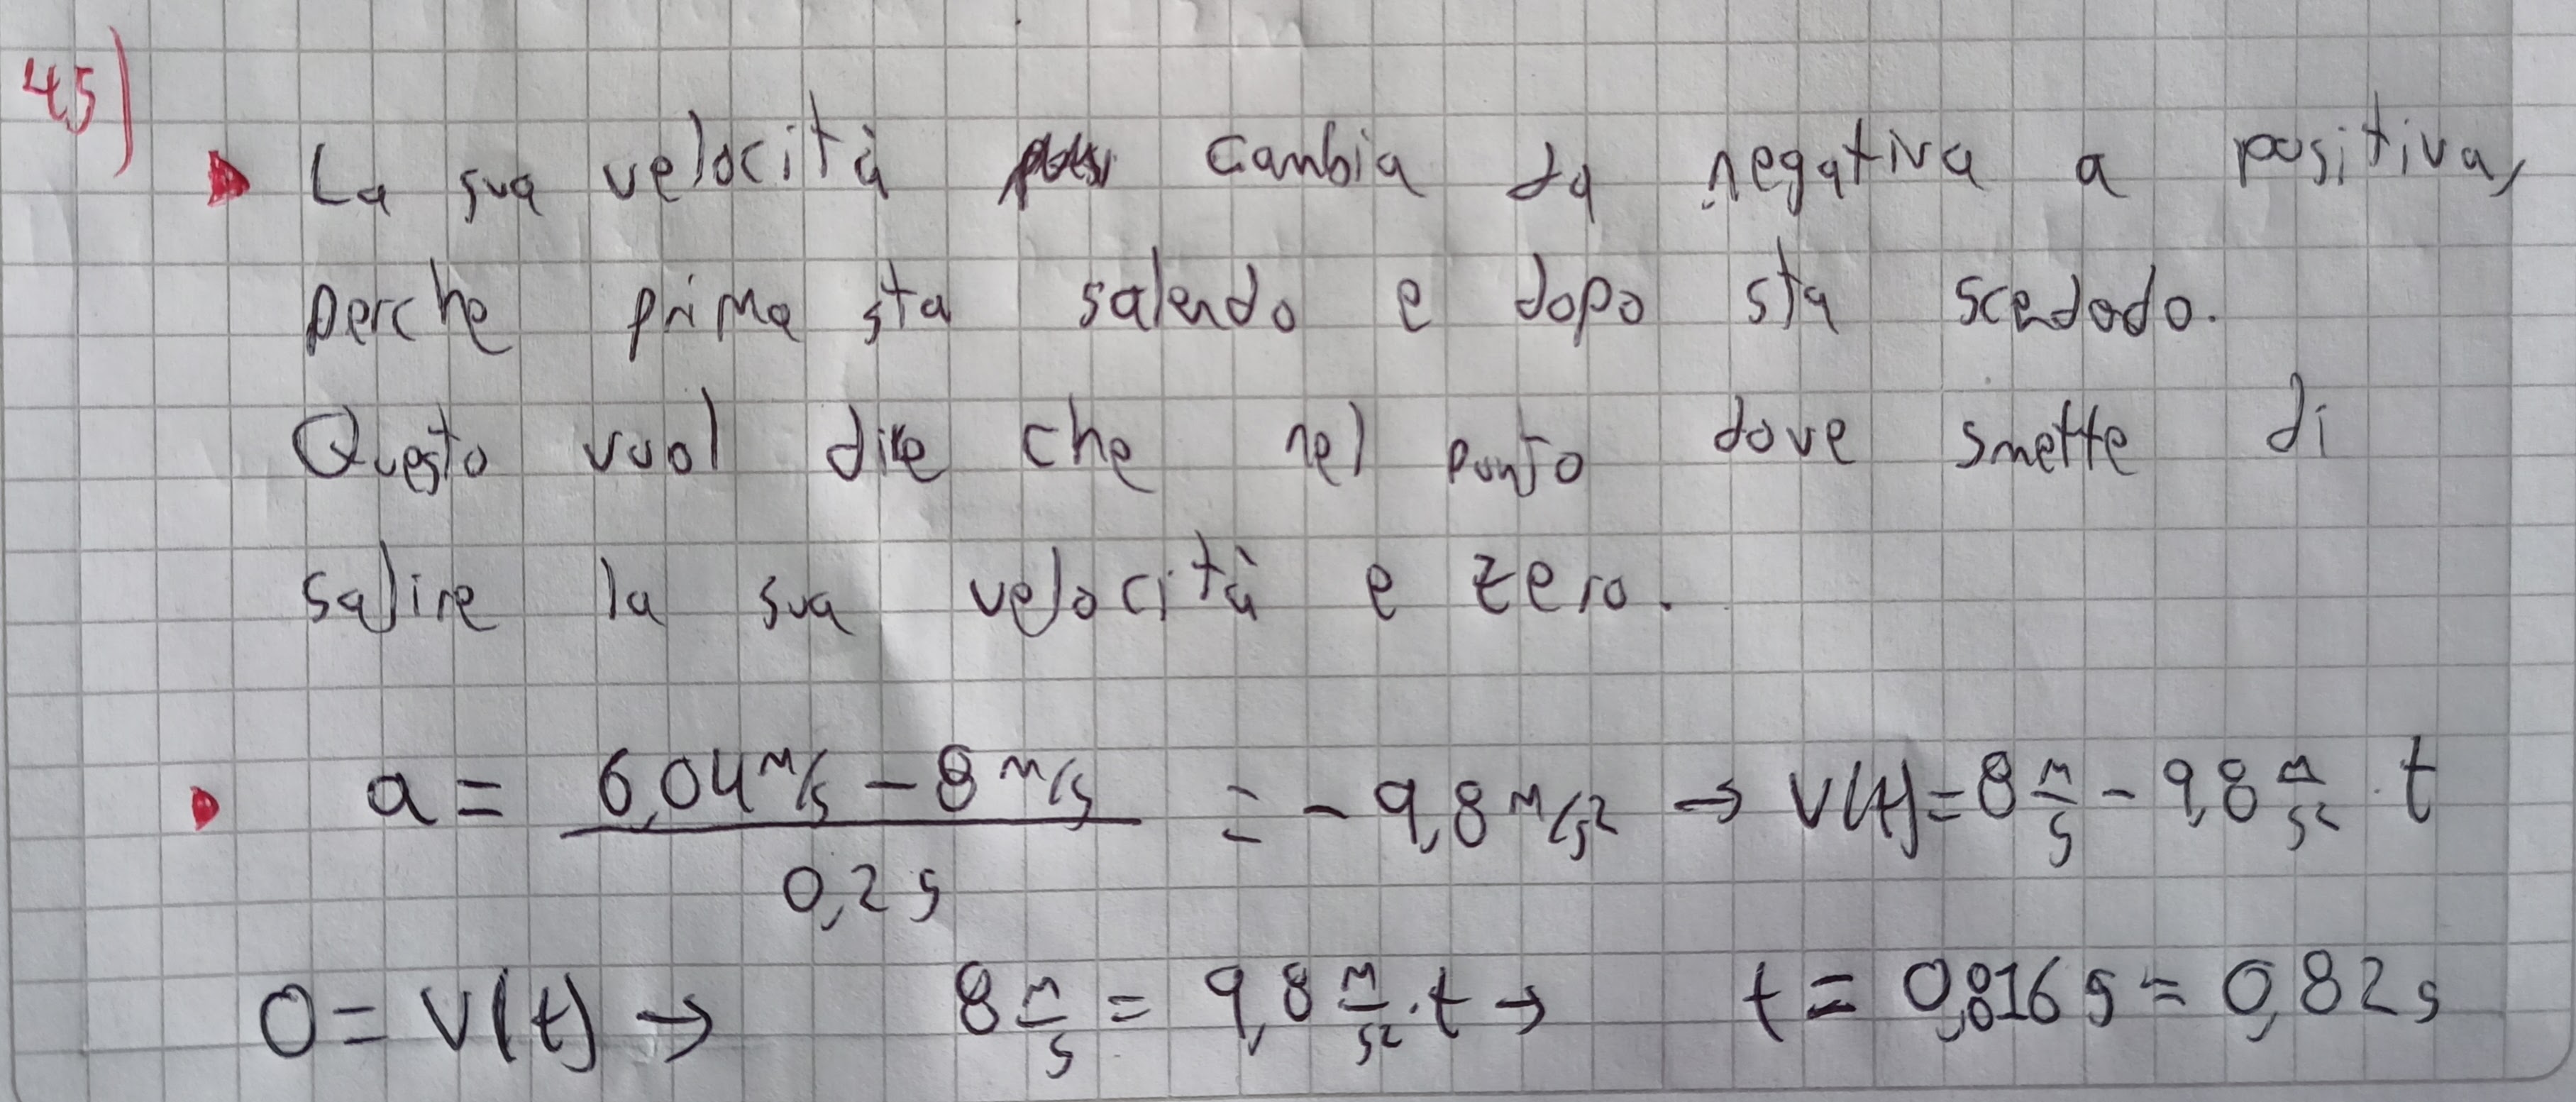 45)
La sua velocità cambia da negativa a positiva,
perche prima sta salendo e dopo sta scedodo.
Questo vuol dire che nel punto dove smette di
salire la sua velocità e zero.
a = (6,04 m/s - 8 m/s) / 0,2 s = - 9,8 m/s² → v(t) = 8 m/s - 9,8 m/s² · t
0 = v(t) → 8 m/s = 9,8 m/s² · t → t = 0,816 s = 0,82 s